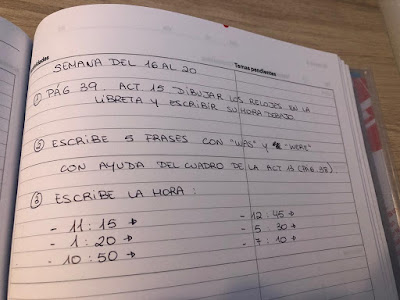 Temas pendientes
SEMANA DEL 16 AL 20
① PÁG 39. ACT. 15 DIBUJAR LOS RELOJES EN LA
LIBRETA Y ESCRIBIR SU HORA DEBAJO
② ESCRIBE 5 FRASES CON "WAS" Y "WERE"
CON AYUDA DEL CUADRO DE LA ACT 13 (PÁG. 38).
③ ESCRIBE LA HORA:
- 11:15 →
- 1:20 →
- 10:50 →
- 12:45 →
- 5:30 →
- 7:10 →